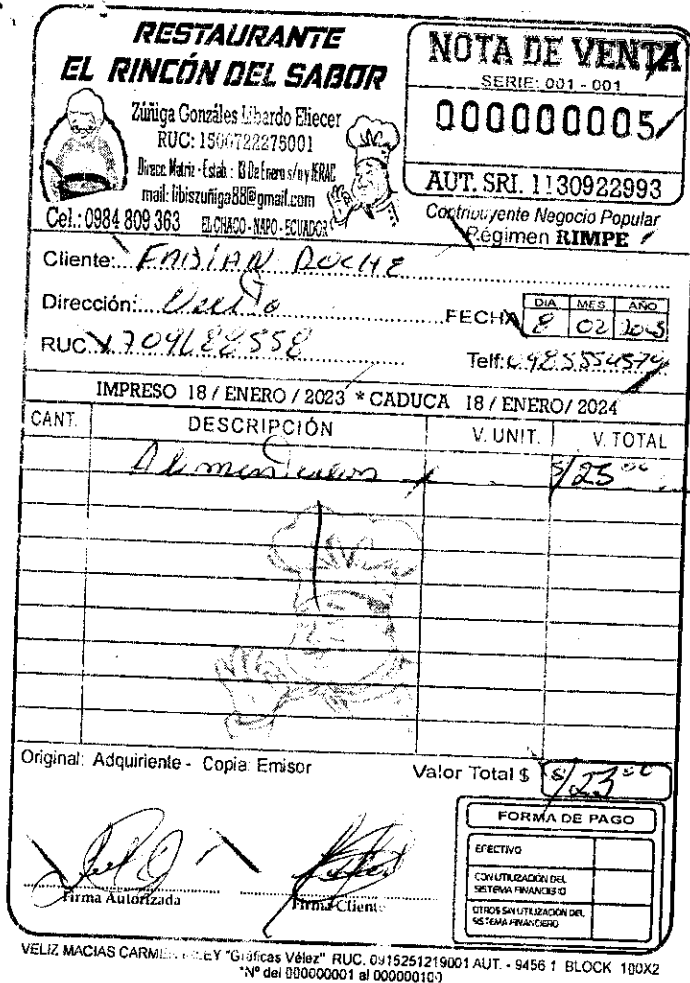 RESTAURANTE
EL RINCÓN DEL SABOR
Zúñiga Gonzáles Libardo Eliecer
RUC: 1500722275001
Direcc. Matriz - Estab.: 13 De Enero s/n y IERAC
mail: libiszuñiga88@gmail.com
Cel.: 0984 809 363 EL CHACO - NAPO - ECUADOR
NOTA DE VENTA
SERIE: 001 - 001
000000005
AUT. SRI. 1130922993
Contribuyente Negocio Popular
Régimen RIMPE
Cliente: FABIAN
Dirección: Quito
FECHA
DIA MES AÑO
8 02
RUC
Telf:
IMPRESO 18 / ENERO / 2023 * CADUCA 18 / ENERO / 2024
CANT. DESCRIPCIÓN V. UNIT. V. TOTAL
Original: Adquiriente - Copia: Emisor
Valor Total $
FORMA DE PAGO
EFECTIVO
CON UTILIZACIÓN DEL
SISTEMA FINANCIERO
OTROS SIN UTILIZACIÓN DEL
SISTEMA FINANCIERO
Firma Autorizada
Firma Cliente
VELIZ MACIAS "Gráficas Vélez" RUC. 0915251219001 AUT. - 9456 1 BLOCK 100X2
"Nº del 000000001 al 000000100